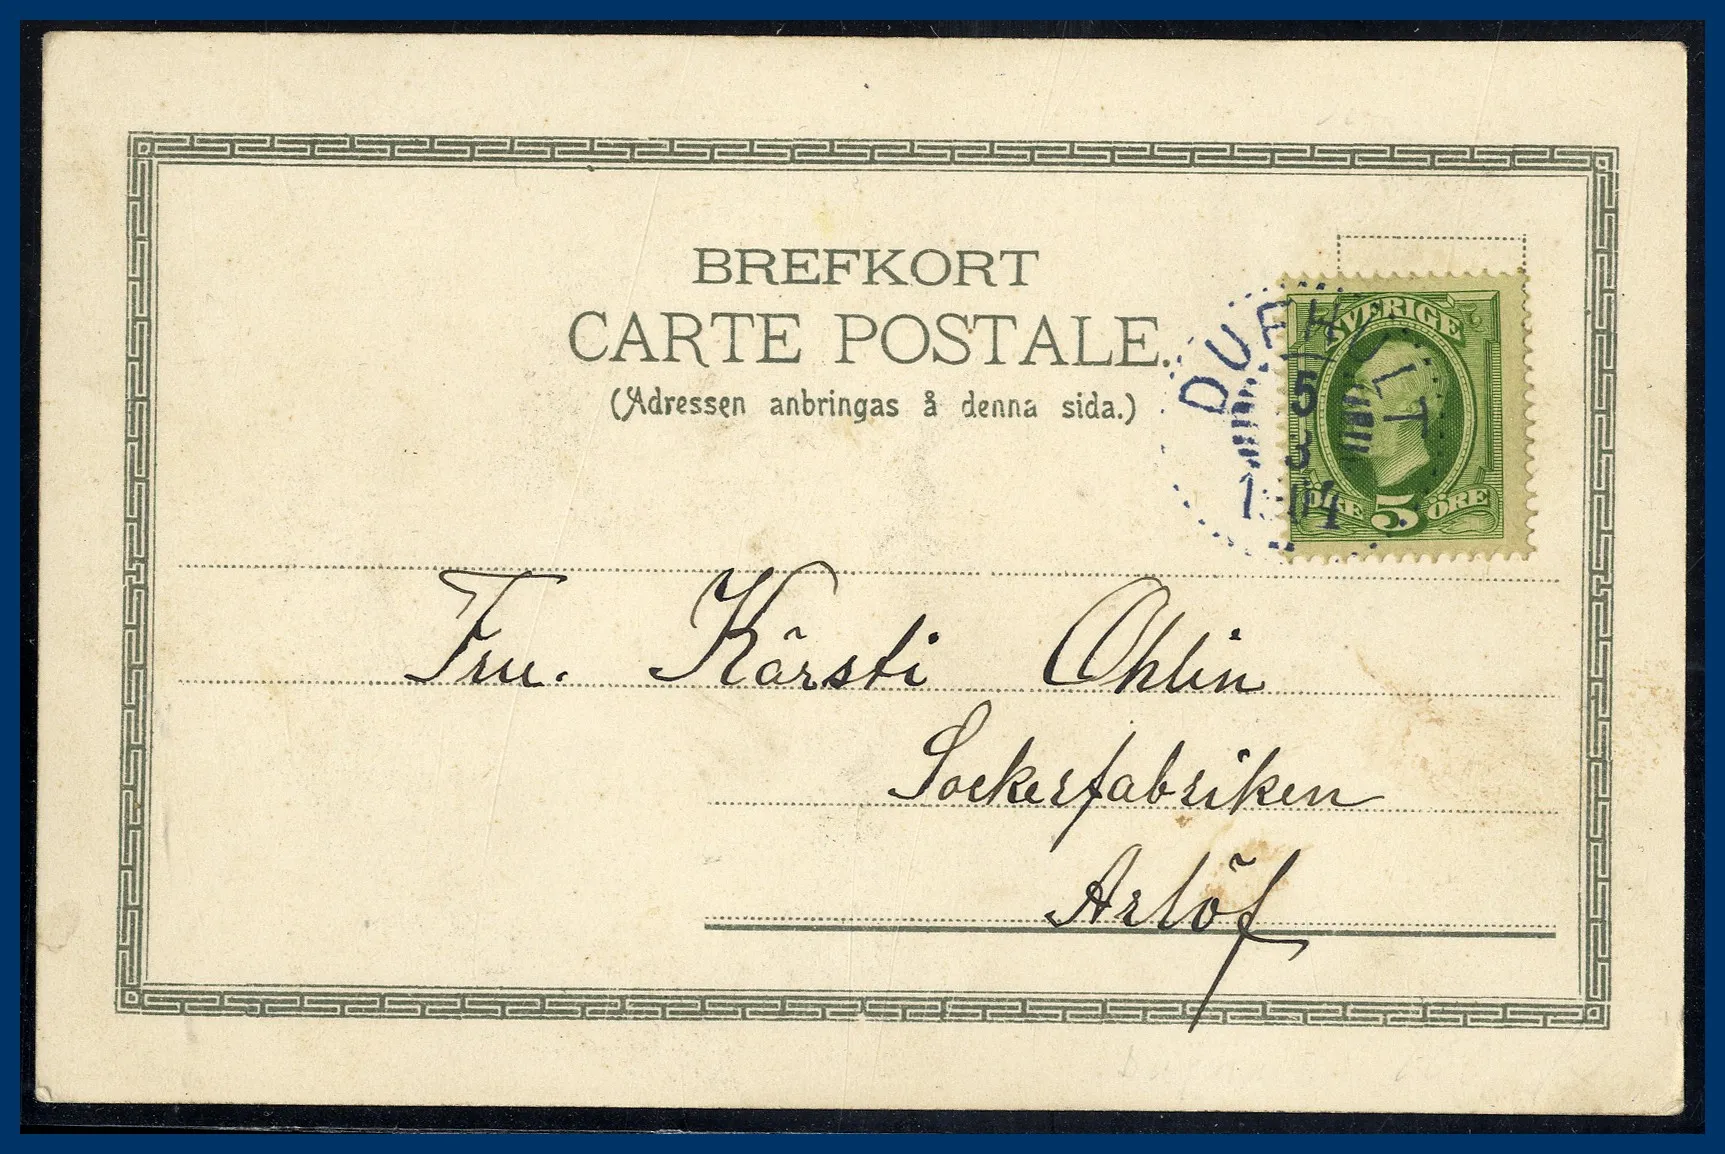 BREFKORT
CARTE POSTALE.
(Adressen anbringas å denna sida.)
SVERIGE
5 ÖRE
DUEHULT
5
3
1904
Fru. Kärsti Ohlin
Sockerfabriken
Arlöf